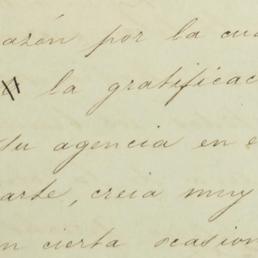 razón por la cua
la gratificac
su agencia en e
arte, creia muy
n cierta ocasion